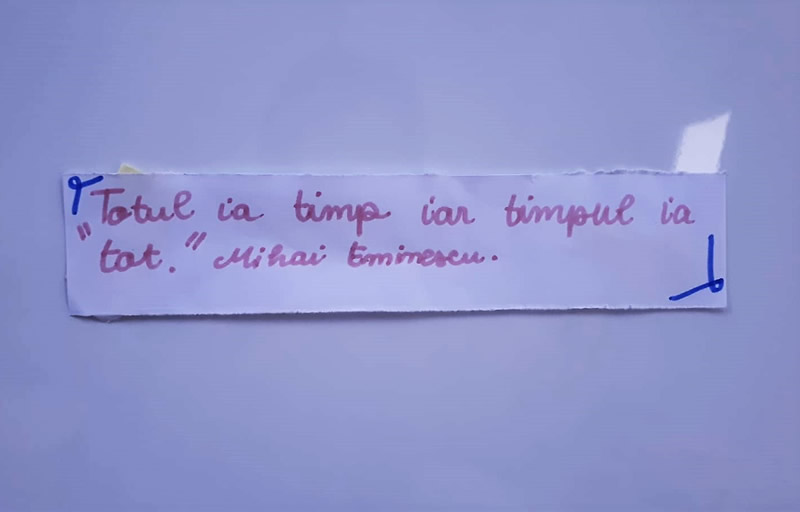 "Totul ia timp iar timpul ia
tot." Mihai Eminescu.